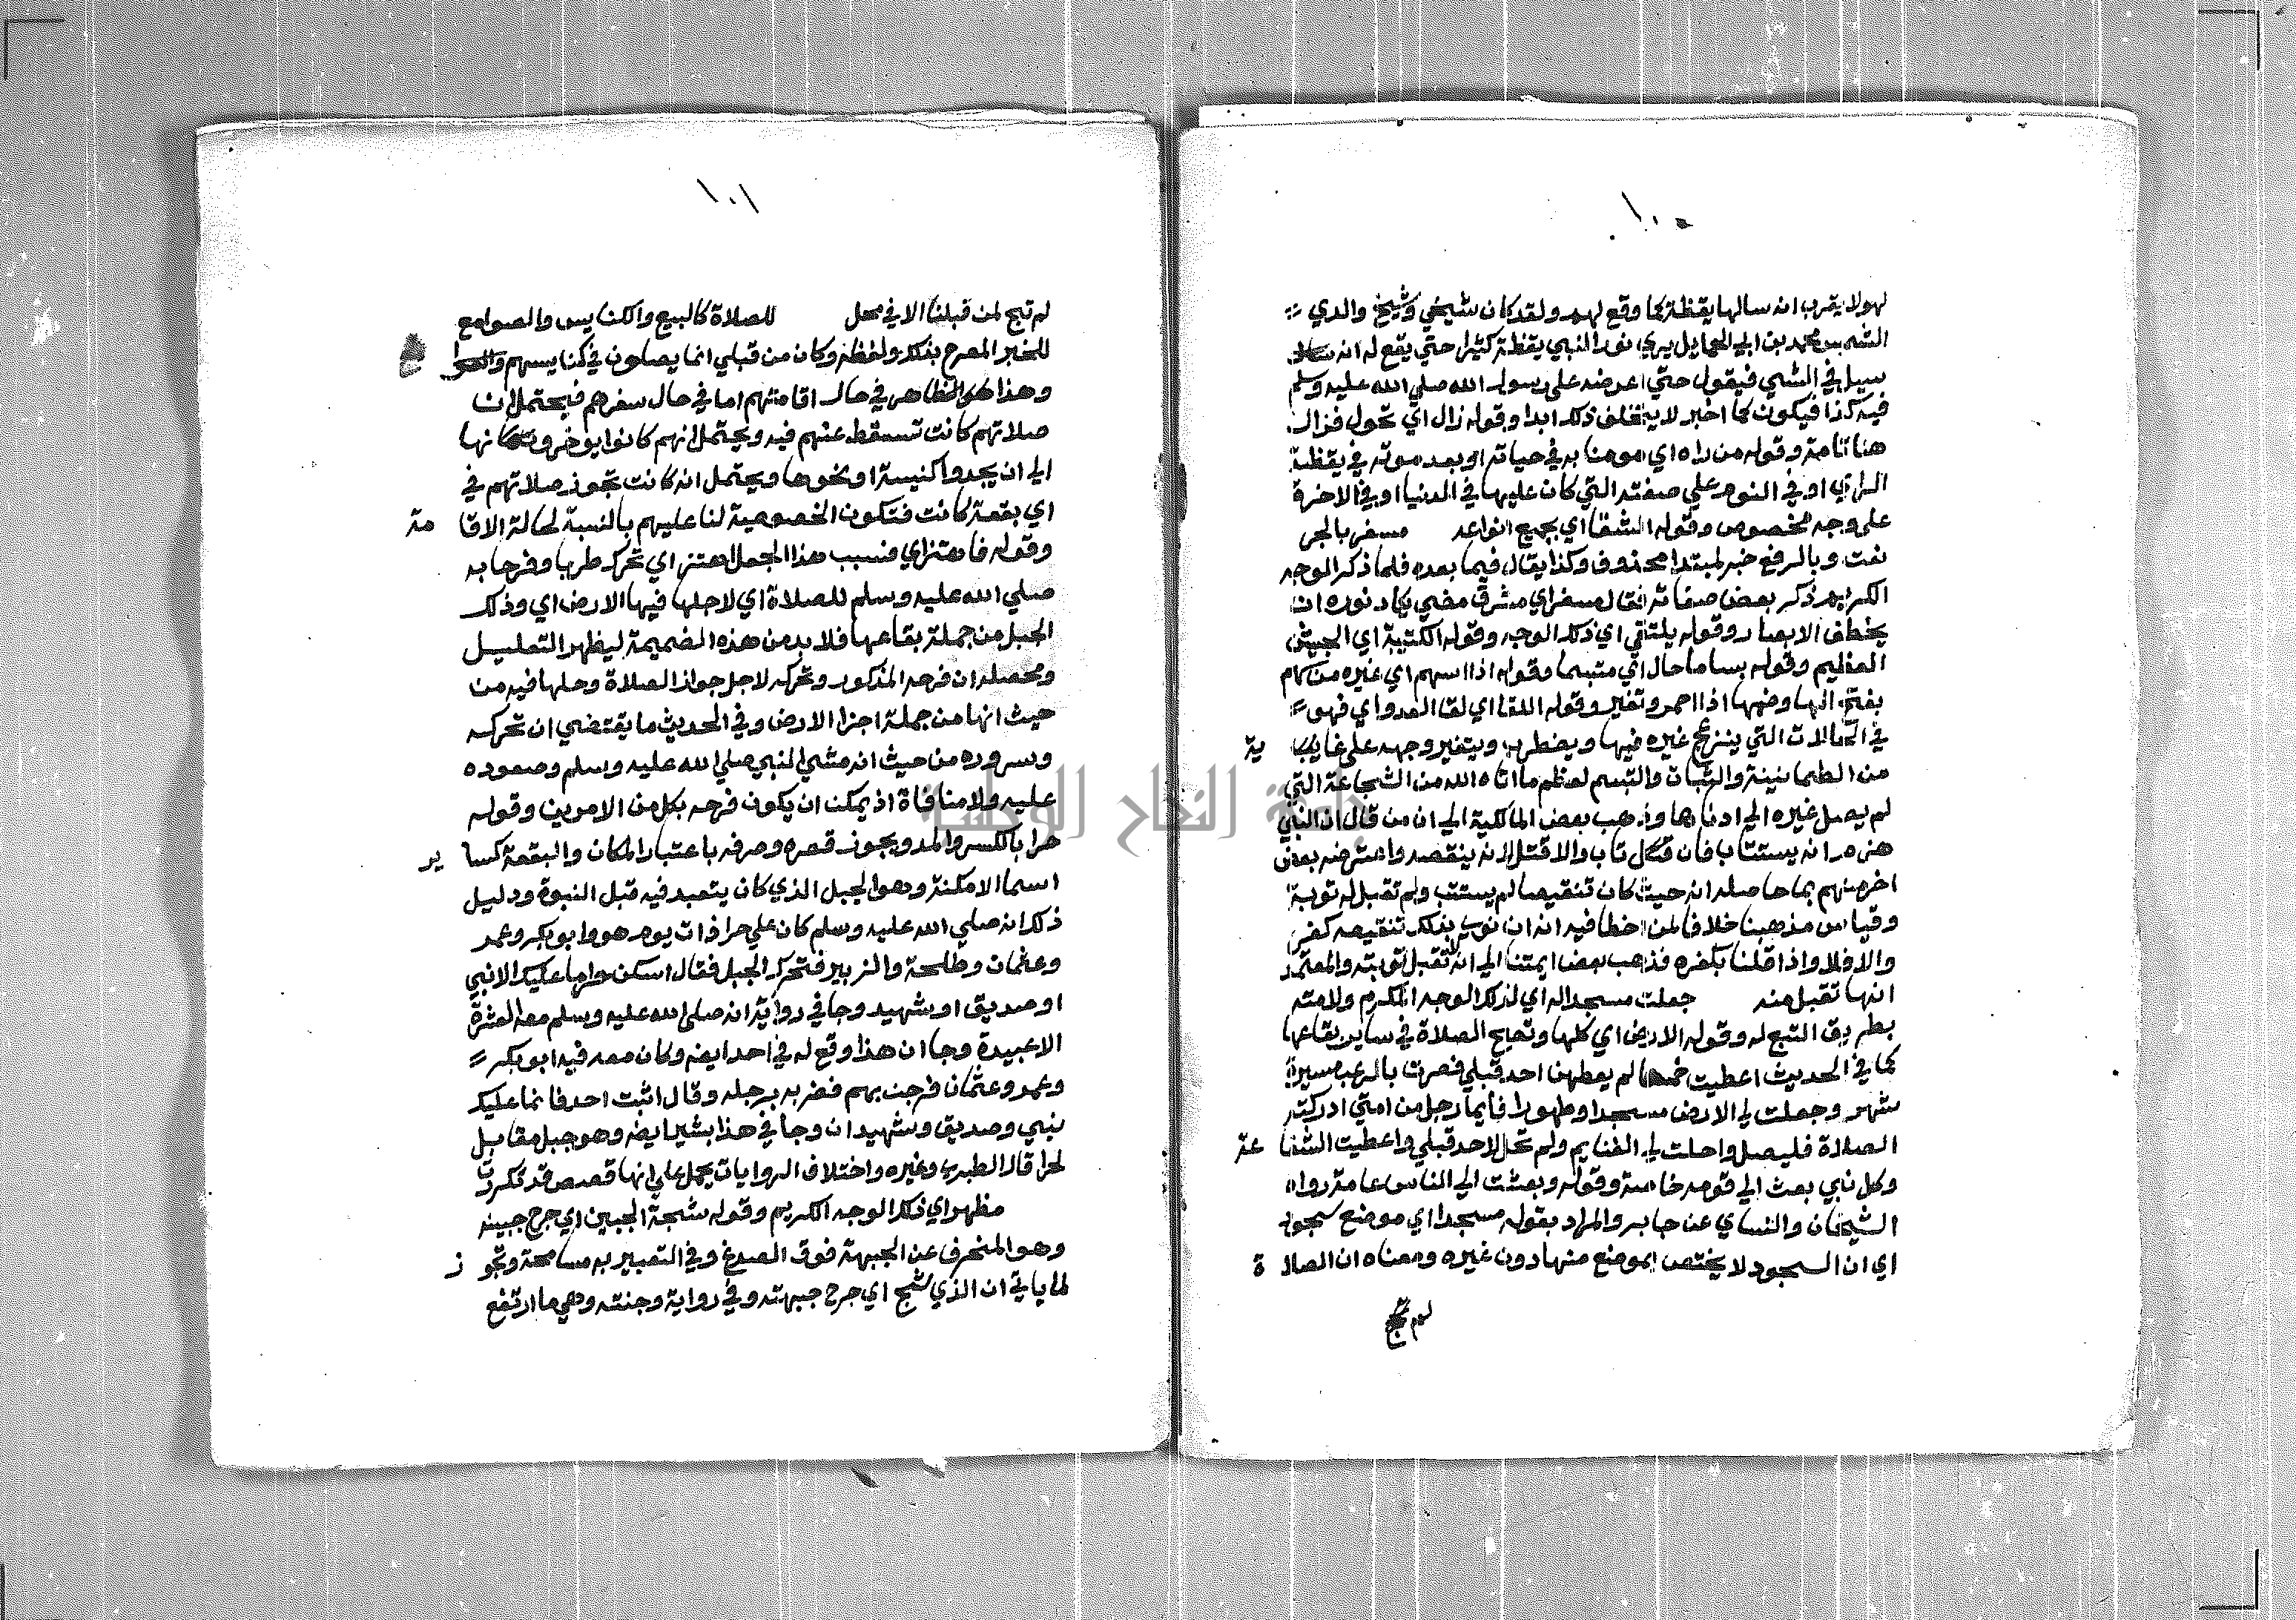 ١٠٠
لهولا يقرب انه سالها يقظة كما وقع لهم ولقد كان شيخي وشيخ والدي
الشمس محمد بن ابي الحمايل يري نور النبي يقظة كثيرا حتي يقع له انه
سيل في الشي فيقول حتي اعرضه علي رسول الله صلي الله عليه وسلم
فيه كذا فيكون كما اخبر لا يتخلف ذلك ابدا وقوله زال اي تحول فزال
هنا تامة وقوله من راه اي مومنا به في حياته او بعد موته في يقظة
الراي او في النوم علي صفته التي كان عليها في الدنيا او في الاخرة
علي وجه مخصوص وقوله الشقا اي بجميع انواعه مسفر بالجر
نعت وبالرفع خبر لمبتدا محذوف وكذا يقال فيما بعده فلما ذكر الوجه
الكريم ذكر بعض صفاته فقال مسفر اي مشرق مضي يكاد نوره ان
يخطف الابصار وقوله يلتقي اي ذلك الوجه وقوله الكتيبة اي الجيش
العظيم وقوله بساما حال اي متبسما وقوله اذا اسهم اي غيره من
بفتح الها وضمها اذا احمر وتغير وقوله اللقا اي لقا العدو اي فهو
في الحالات التي ينزعج غيره فيها ويضطرب ويتغير وجهه علي غاية
من الطمانينة والثبات والتبسم لعظم ما اتاه الله من الشجاعة التي
لم يصل غيره الي ادناها وذهب بعض المالكية الي ان من قال ان النبي
هزم انه يستتاب فان تاب والا قتل لانه ينقصه واعترضه بعض
اخر منهم بما حاصله انه حيث كان تنقيصا لم يستتب ولم تقبل له توبة
وقياس مذهبنا خلافا لمن اخطا فيه انه ان نوي بذلك تنقيصه كفر
والا فلا واذا قلنا بكفره فذهب بعض ايمتنا الي انه لا تقبل توبته والمعتمد
انها تقبل منه جعلت مسجدا له اي لذلك الوجه المكرم ولامته
بطريق التبع له وقوله الارض اي كلها وتصح الصلاة في ساير بقاعها
كما في الحديث اعطيت خمسا لم يعطهن احد قبلي نصرت بالرعب مسيرة
شهر وجعلت لي الارض مسجدا وطهورا فايما رجل من امتي ادركته
الصلاة فليصل واحلت لي الغنايم ولم تحل لاحد قبلي واعطيت الشفاعة
وكل نبي بعث الي قومه خاصة وقوله وبعثت الي الناس عامة رواه
الشيخان والنساي عن جابر والمراد بقوله مسجدا اي موضع سجود
اي ان السجود لا يختص بموضع منها دون غيره ومعناه ان الصلاة
لم تبح
١٠١
لم تبح لمن قبلنا الا في محل للصلاة كالبيع والكنايس والصوامع
للخبر المصرح بذلك ولفظه وكان من قبلي انما يصلون في كنايسهم
وهذا هو الظاهر في حال اقامتهم اما في حال سفرهم فيحتمل ان
صلاتهم كانت تسقط عنهم فيه ويحتمل انهم كانوا يوخرونها
الي ان يجدوا كنيسة او نحوها ويحتمل انه كانت تجوز صلاتهم في
اي بقعة كانت فتكون الخصوصية لنا عليهم بالنسبة لحالة الاقامة
وقوله فاهتز اي فبسبب هذا الجعل اهتز اي تحرك طربا وفرحا به
صلي الله عليه وسلم للصلاة اي لاجلها فيها الارض اي وذلك
الجبل من جملة بقاعها فلا بد من هذه الضميمة ليظهر التعليل
ومحصله ان فرحه المذكور وتحركه لاجل جواز الصلاة وحلها فيه من
حيث انها من جملة اجزا الارض وفي الحديث ما يقتضي ان تحركه
وسروره من حيث انه مشي النبي صلي الله عليه وسلم وصعوده
عليه ولا منافاة اذ يمكن ان يكون فرحه بكل من الامرين وقوله
حرا بالكسر والمد ويجوز قصره وصرفه باعتبار المكان والبقعة كساير
اسما الامكنة وهو الجبل الذي كان يتعبد فيه قبل النبوة ودليل
ذلك انه صلي الله عليه وسلم كان علي حرا ذات يوم هو وابو بكر وعمر
وعثمان وطلحة والزبير فتحرك الجبل فقال اسكن حرا ما عليك الا نبي
او صديق او شهيد وجا في رواية انه صلي الله عليه وسلم معه العشرة
الا عبيدة وجا ان هذا وقع له في احد ايضه وكان معه فيه ابو بكر
وعمر وعثمان فرجف بهم فضربه برجله وقال اثبت احد فانما عليك
نبي وصديق وشهيدان وجا في هذا بثير ايضه وهو جبل مقابل
لحرا قال الطبري وغيره واختلاف الروايات يحمل علي انها قصص قد تكررت
مظهر اي ذلك الوجه الكريم وقوله شجة الجبين اي جرح جبينه
وهو المنحرف عن الجبهة فوق الصدغ وفي التعبير به مسامحة وتجوز
لما ياتي ان الذي شج اي جرح جبهته وفي رواية وجنته وهي ما ارتفع
جامعة النجاح الوطنية